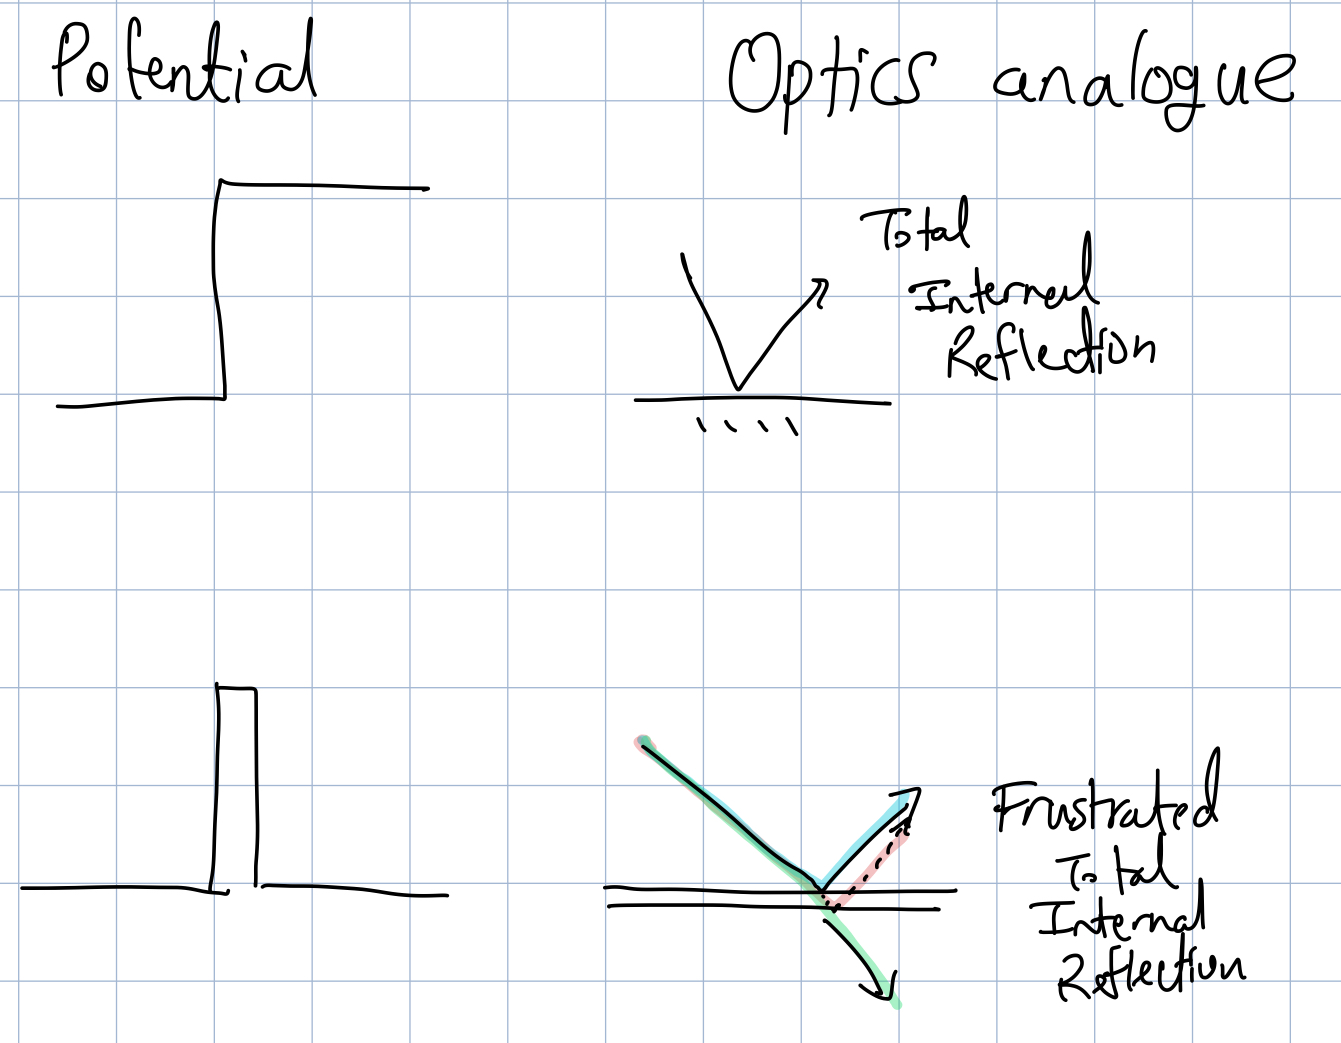 Potential
Optics analogue
Total
Internal
Reflection
Frustrated
Total
Internal
Reflection